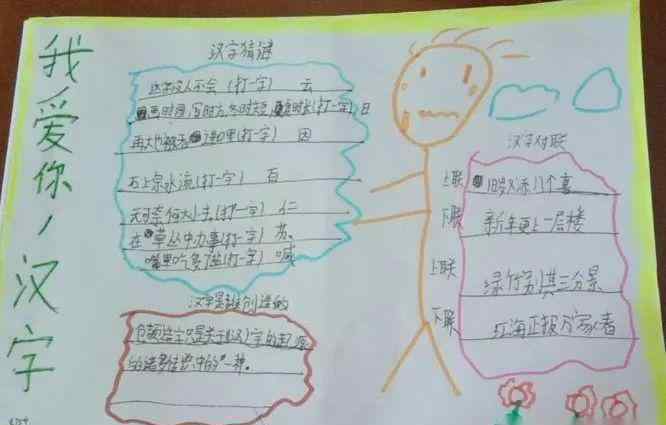 我爱你,汉字
汉字猜谜
这年没人不会(打一字) 云
画时圆,写时方,冬时短,夏时长(打一字)日
再大也被 里(打一字) 因
石上泉水流(打一字) 百
无可奈何人去(打一字) 仁
在草丛中办事(打一字) 苏
嘴里吃多了盐(打一字) 喊
汉字是谁创造的
仓颉造字只是关于 字的起源
的诸多传 中的一种。
汉字对联
上联 旧岁又添几个喜
下联 新年更上一层楼
上联 绿竹别其三分景
下联 红梅正报万家春